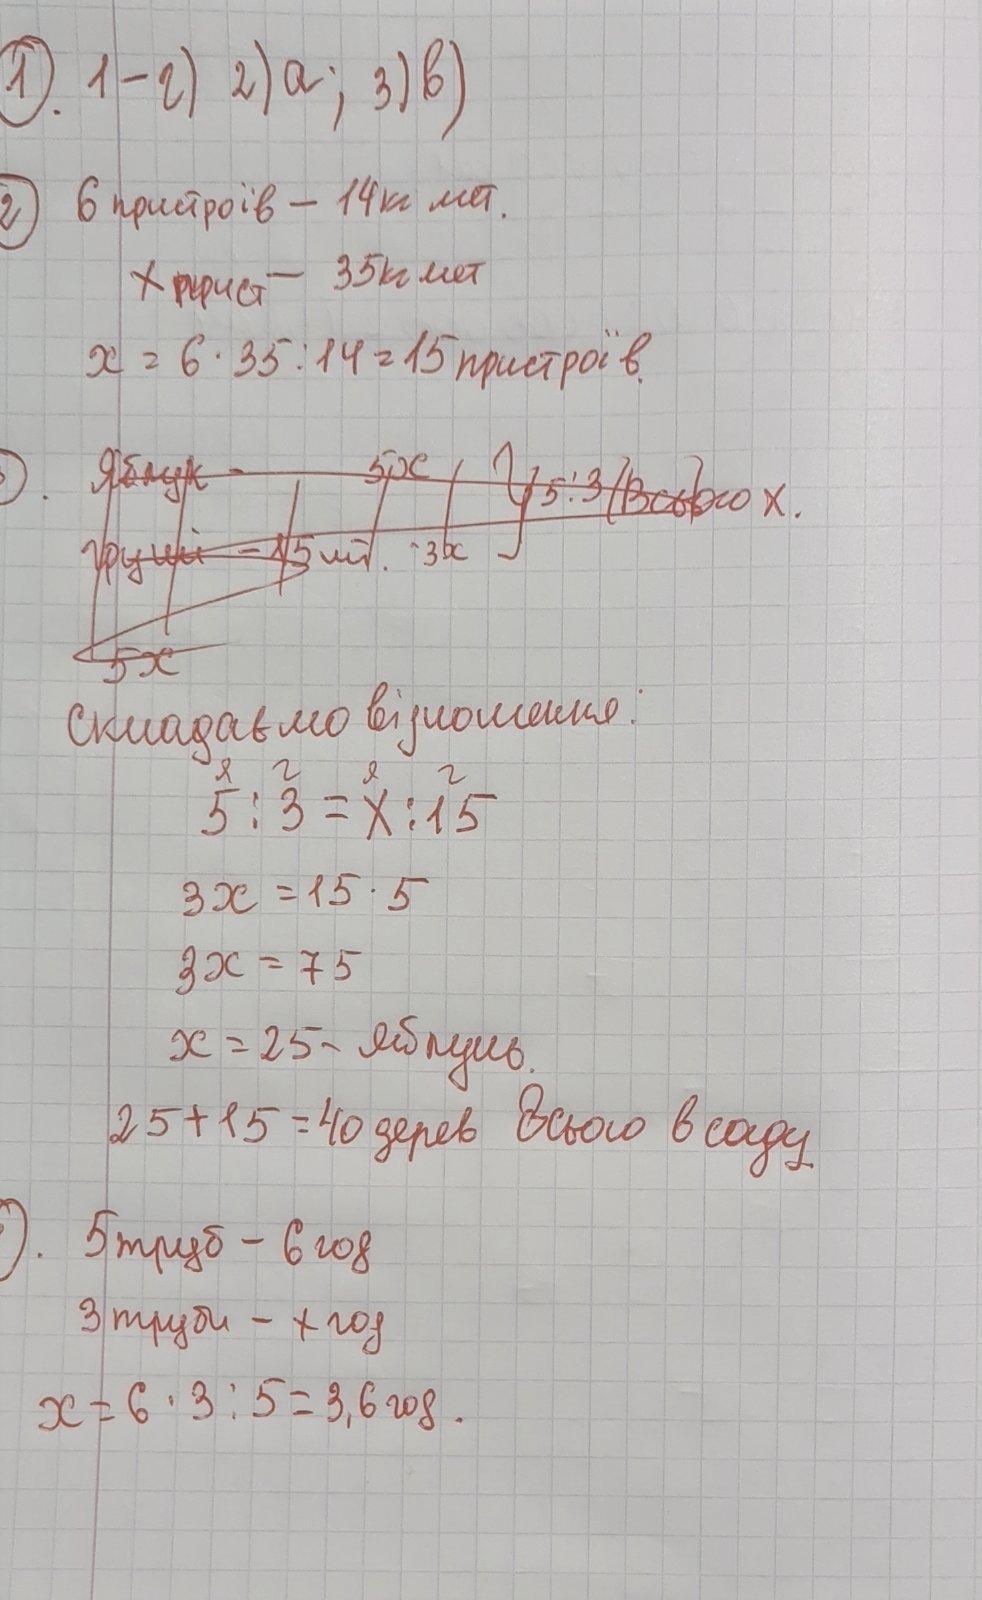 1. 1-г) 2) а; 3) в)
2 6 пристроїв - 14 кг мет.
х прист - 35 кг мет
х = 6 · 35 : 14 = 15 пристроїв.
Яблук - 5х 5:3 (Всього х.
груші - 15 шт. 3х
5х
Складаємо відношення:
я г я г
5 : 3 = х : 15
3х = 15 · 5
3х = 75
х = 25 - яблунь.
25 + 15 = 40 дерев Всього в саду
5 труб - 6 год
3 труби - х год
х = 6 · 3 : 5 = 3,6 год.